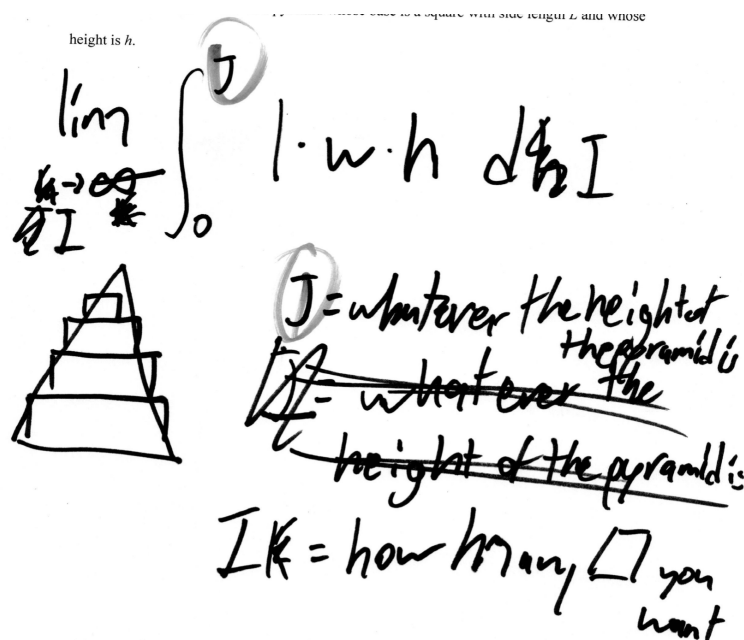 base is a square with side length L and whose
height is h.
lim
∫ J
0
l · w · h d I
→ ∞
I
J = whatever the height of
the pyramid is
= whatever the
height of the pyramid is
I = how many ▱ you
want